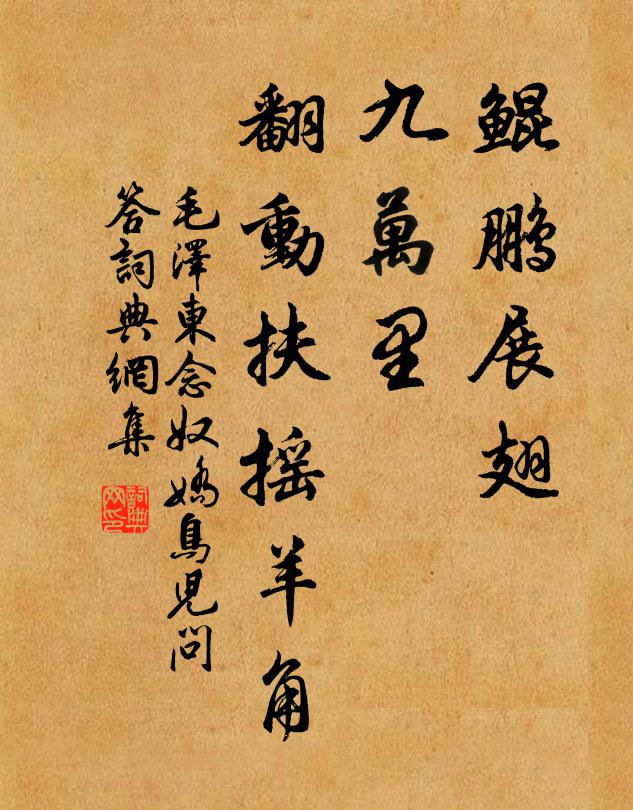 鯤鵬展翅
九萬里
翻動扶搖羊角
毛澤東念奴嬌鳥兒問
答詞典網集
詞典
网印